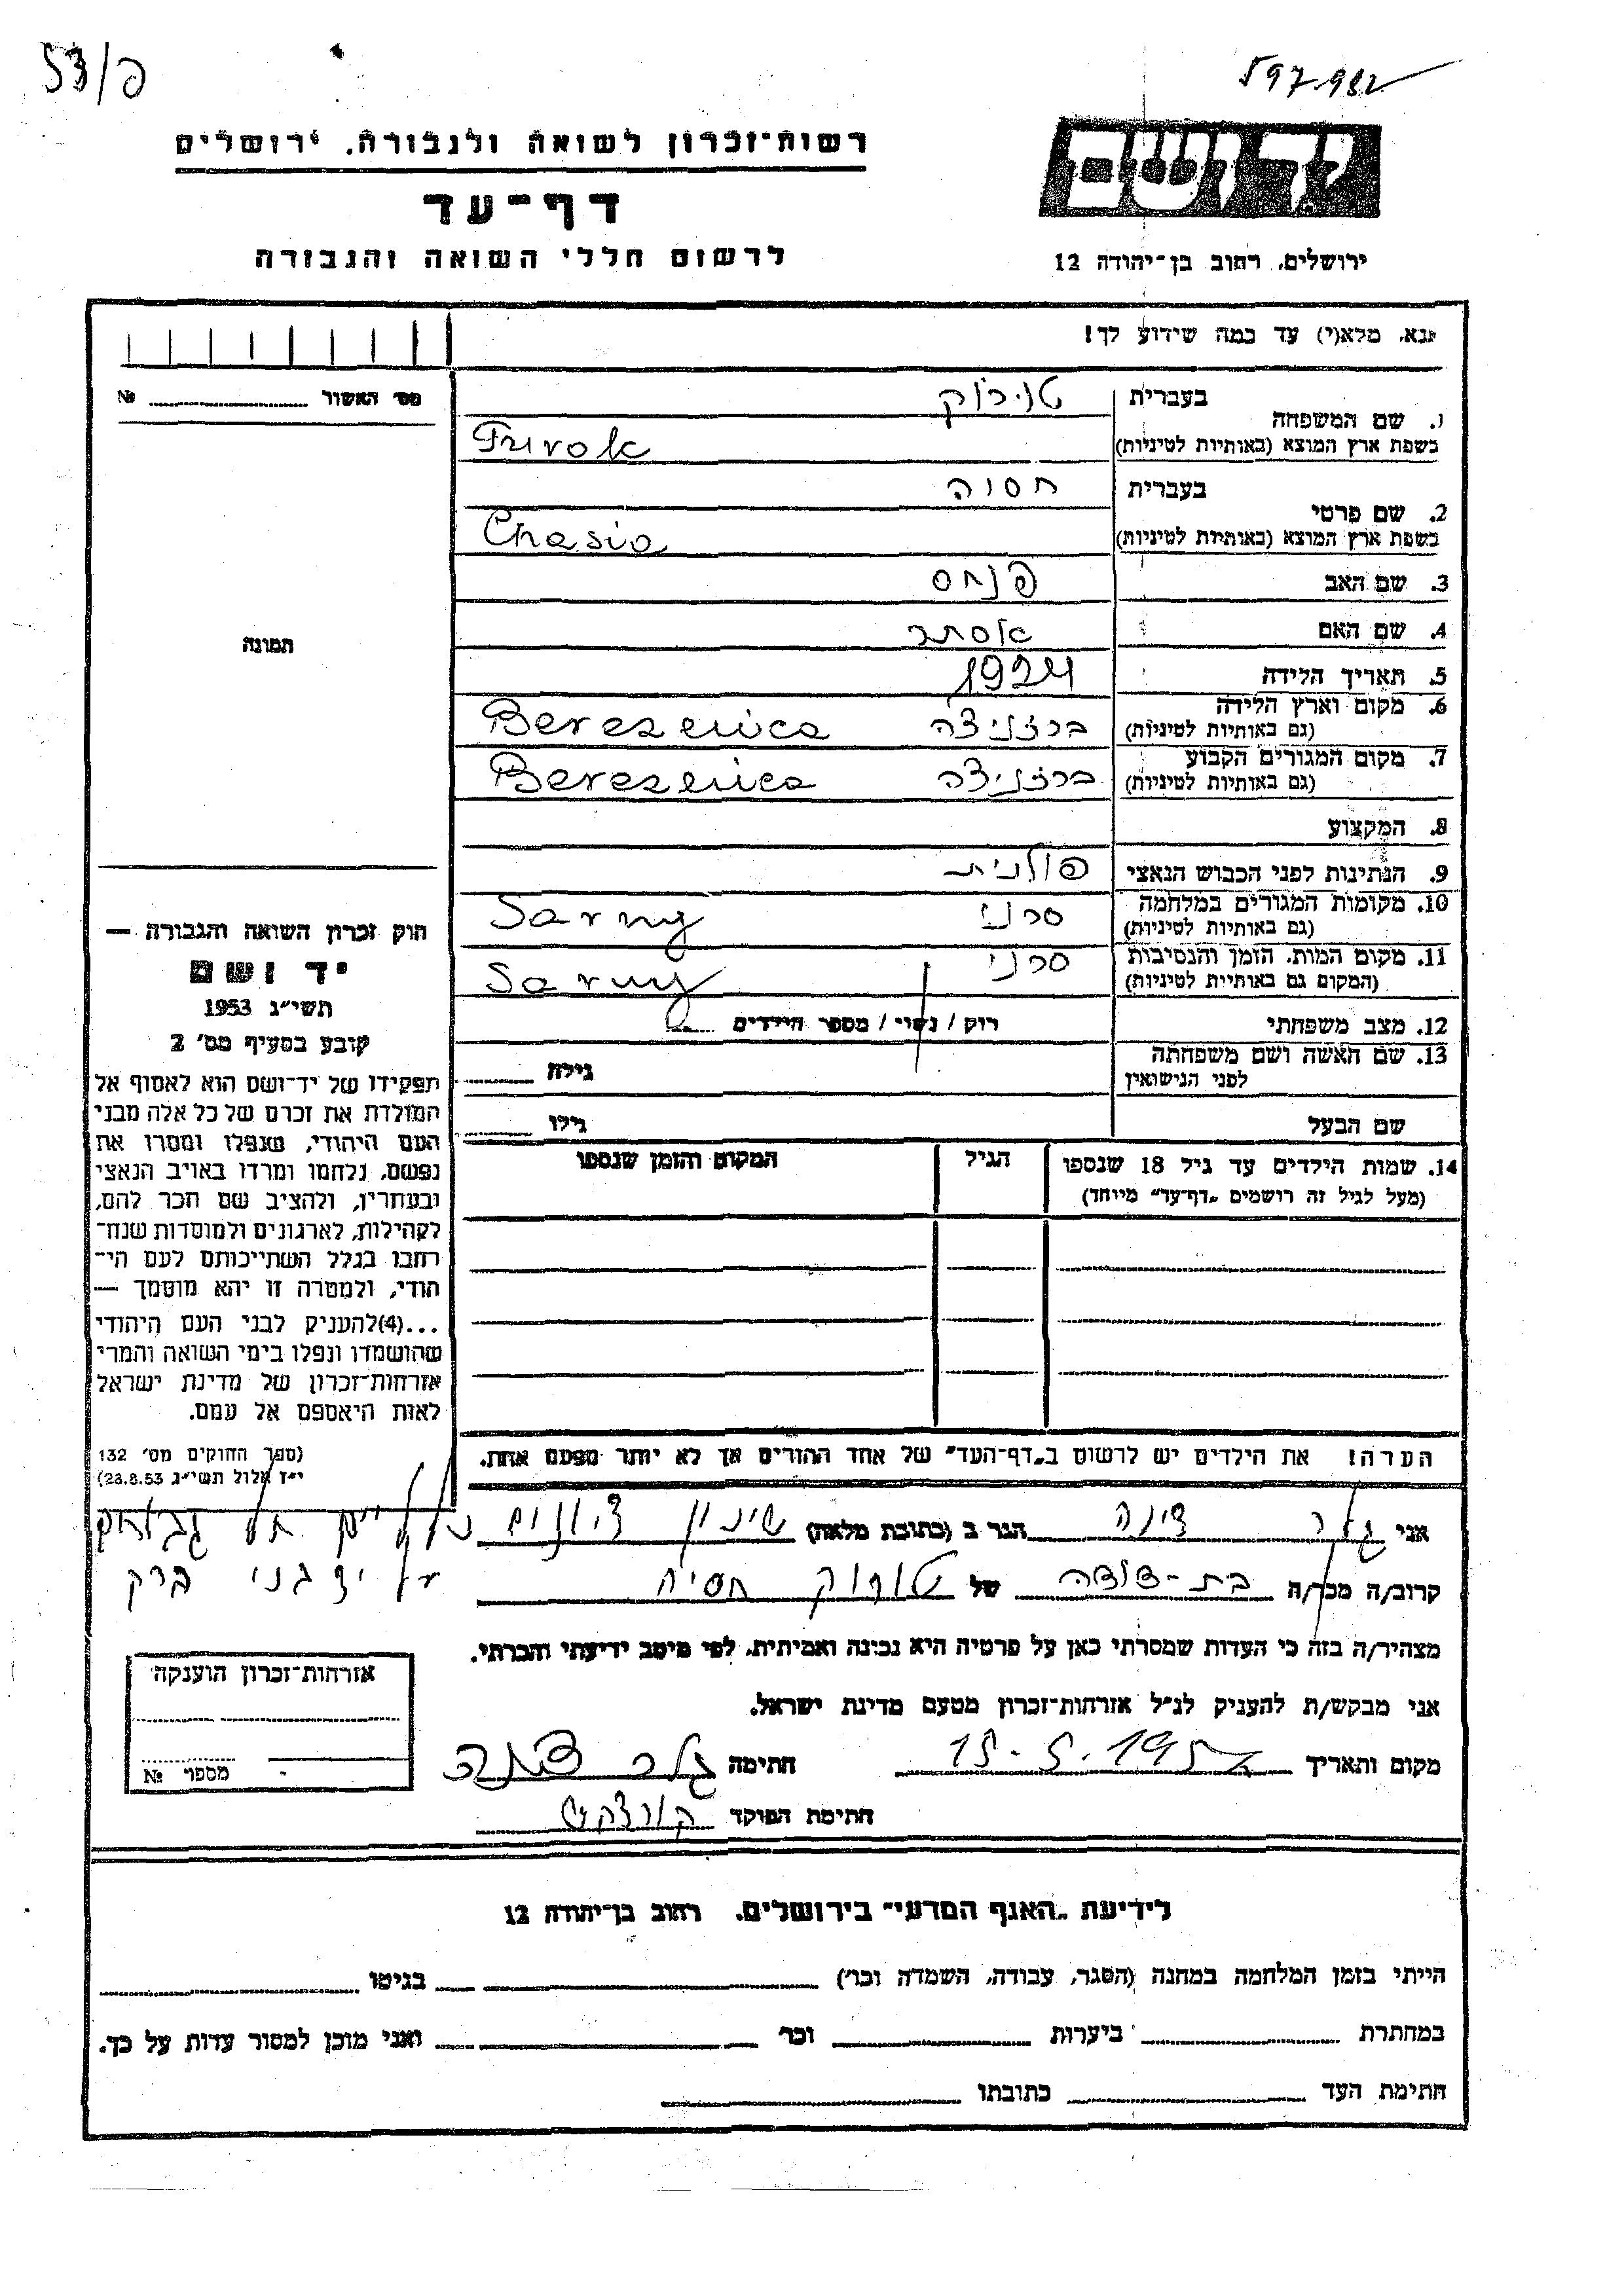 53/פ
597-982
רשות־זכרון לשואה ולגבורה, ירושלים
יד ושם
דף־עד
לרשום חללי השואה והגבורה
ירושלים, רחוב בן־יהודה 12
נא, מלא(י) עד כמה שידוע לך!
מס׳ האשור № 
1. שם המשפחה
בעברית טורוק
בשפת ארץ המוצא (באותיות לטיניות) Turok
2. שם פרטי
בעברית חסיה
בשפת ארץ המוצא (באותיות לטיניות) Chasia
3. שם האב פנחס
4. שם האם אסתר
תמונה
5. תאריך הלידה 1924
6. מקום וארץ הלידה (גם באותיות לטיניות) ברזניצה Bereznica
7. מקום המגורים הקבוע (גם באותיות לטיניות) ברזניצה Bereznica
8. המקצוע
9. הנתינות לפני הכבוש הנאצי פולנית
10. מקומות המגורים במלחמה (גם באותיות לטיניות) סרני Sarny
11. מקום המות, הזמן והנסיבות (המקום גם באותיות לטיניות) סרני Sarny
12. מצב משפחתי רוק / נשוי / מספר הילדים
13. שם האשה ושם משפחתה לפני הנישואין גילה
שם הבעל גילו
14. שמות הילדים עד גיל 18 שנספו הגיל המקום והזמן שנספו
(מעל לגיל זה רושמים „דף־עד״ מיוחד)
חוק זכרון השואה והגבורה —
יד ושם
תשי״ג 1953
קובע בסעיף מס׳ 2
תפקידו של יד־ושם הוא לאסוף אל
המולדת את זכרם של כל אלה מבני
העם היהודי, שנפלו ומסרו את
נפשם, נלחמו ומרדו באויב הנאצי
ובעוזריו, ולהציב שם וזכר להם,
לקהילות, לארגונים ולמוסדות שנח־
רבו בגלל השתייכותם לעם הי־
הודי, ולמטרה זו יהא מוסמך —
...(4)להעניק לבני העם היהודי
שהושמדו ונפלו בימי השואה והמרי
אזרחות־זכרון של מדינת ישראל
לאות היאספם אל עמם.
(ספר החוקים מס׳ 132
י״ז אלול תשי״ג 23.8.53)
הערה! את הילדים יש לרשום ב„דף־העד״ של אחד ההורים אך לא יותר מפעם אחת.
אני גלר דינה הגר ב (כתובת מלאה) שיכון
על יד בני ברק
קרוב/ה מכר/ה בת-דודה של טורוק חסיה
מצהיר/ה בזה כי העדות שמסרתי כאן על פרטיה היא נכונה ואמיתית, לפי מיטב ידיעתי והכרתי.
אני מבקש/ת להעניק לנ״ל אזרחות־זכרון מטעם מדינת ישראל.
מקום ותאריך 15-5-195 חתימה גלר דינה
חתימת הפוקד
אזרחות־זכרון הוענקה
מספר №
לידיעת „האגף המדעי״ בירושלים, רחוב בן־יהודה 12
הייתי בזמן המלחמה במחנה (הסגר, עבודה, השמדה וכר׳) בגיטו
במחתרת ביערות וכר׳ ואני מוכן למסור עדות על כך.
חתימת העד כתובתו